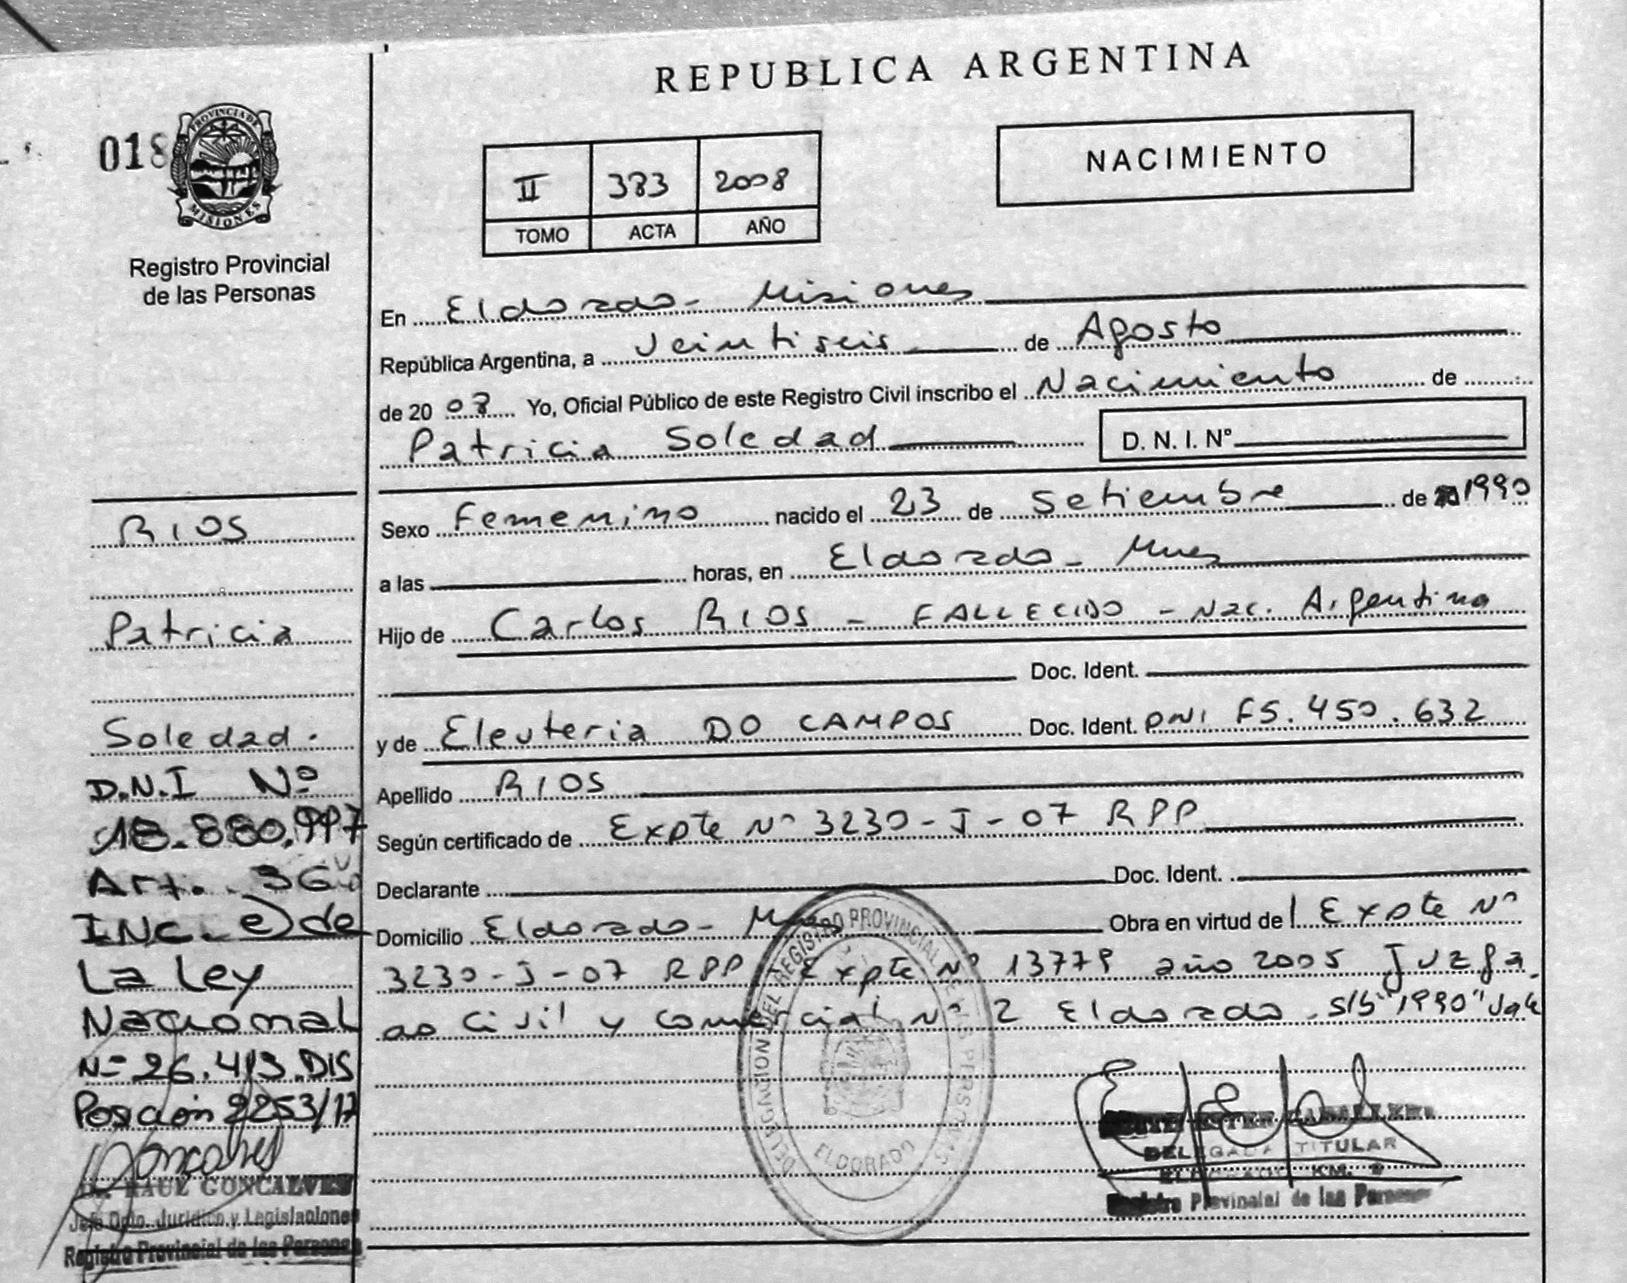 REPUBLICA ARGENTINA
018
PROVINCIA DE MISIONES
Registro Provincial
de las Personas
NACIMIENTO
II 383 2008
TOMO ACTA AÑO
En Eldorado - Misiones
República Argentina, a Veintiseis de Agosto
de 20 08 Yo, Oficial Público de este Registro Civil inscribo el Nacimiento de
Patricia Soledad D. N. I. Nº
Sexo Femenino nacido el 23 de Setiembre de 1990
a las horas, en Eldorado - Mnes
Hijo de Carlos RIOS - FALLECIDO - Nac. Argentino
Doc. Ident.
y de Eleuteria DO CAMPOS Doc. Ident. DNI F5.450.632
Apellido RIOS
Según certificado de Expte Nº 3230-J-07 RPP
Declarante Doc. Ident.
Domicilio Eldorado - Mnes Obra en virtud de Expte Nº
3230-J-07 RPP Expte Nº 13779 año 2005 Juzga
do Civil y comercial Nº 2 Eldorado. S/S "1990" Vale
RIOS
Patricia
Soledad.
D.N.I Nº
18.880.997
Art. 36
INC. e) de
La Ley
Nacional
Nº 26.413.DIS
Posición 2253/17
Goncalves
RAUL GONCALVES
Jefe Dpto. Jurídico y Legislaciones
Registro Provincial de las Personas
DELEGACION DEL REGISTRO PROVINCIAL DE LAS PERSONAS
ELDORADO
ESTER CABALLERO
DELEGADA TITULAR
ELDORADO KM. 9
Registro Provincial de las Personas